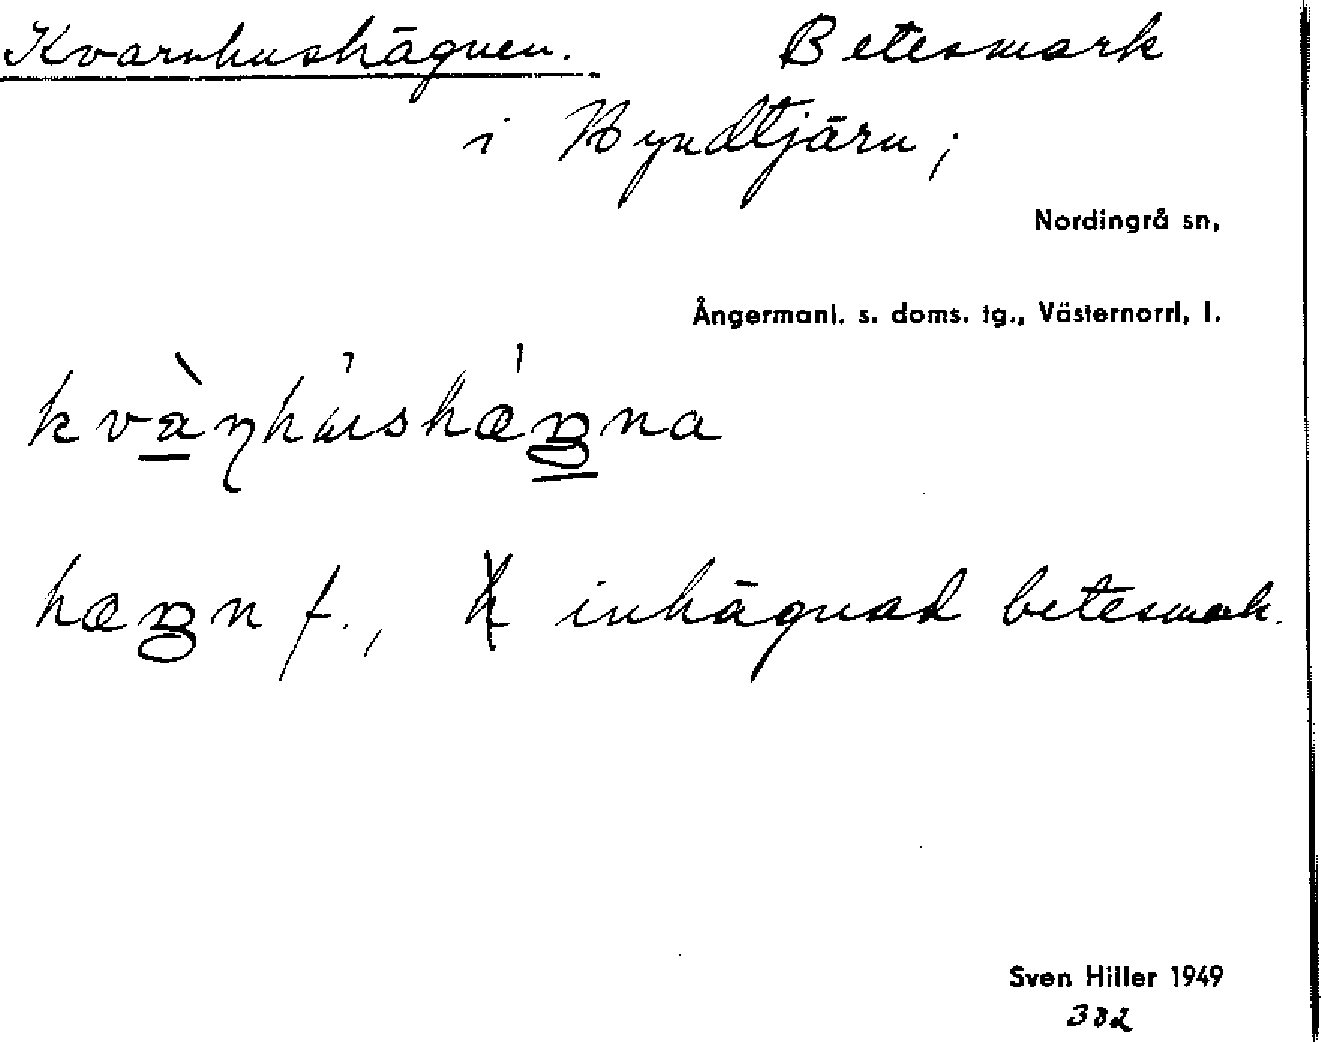 Kvarnhushägnen. Betesmark
i Hyndtjärn;
Nordingrå sn,
Ångermanl. s. doms. tg., Västernorrl, l.
hæᶎn f., inhägnad betesmark.
Sven Hiller 1949
382